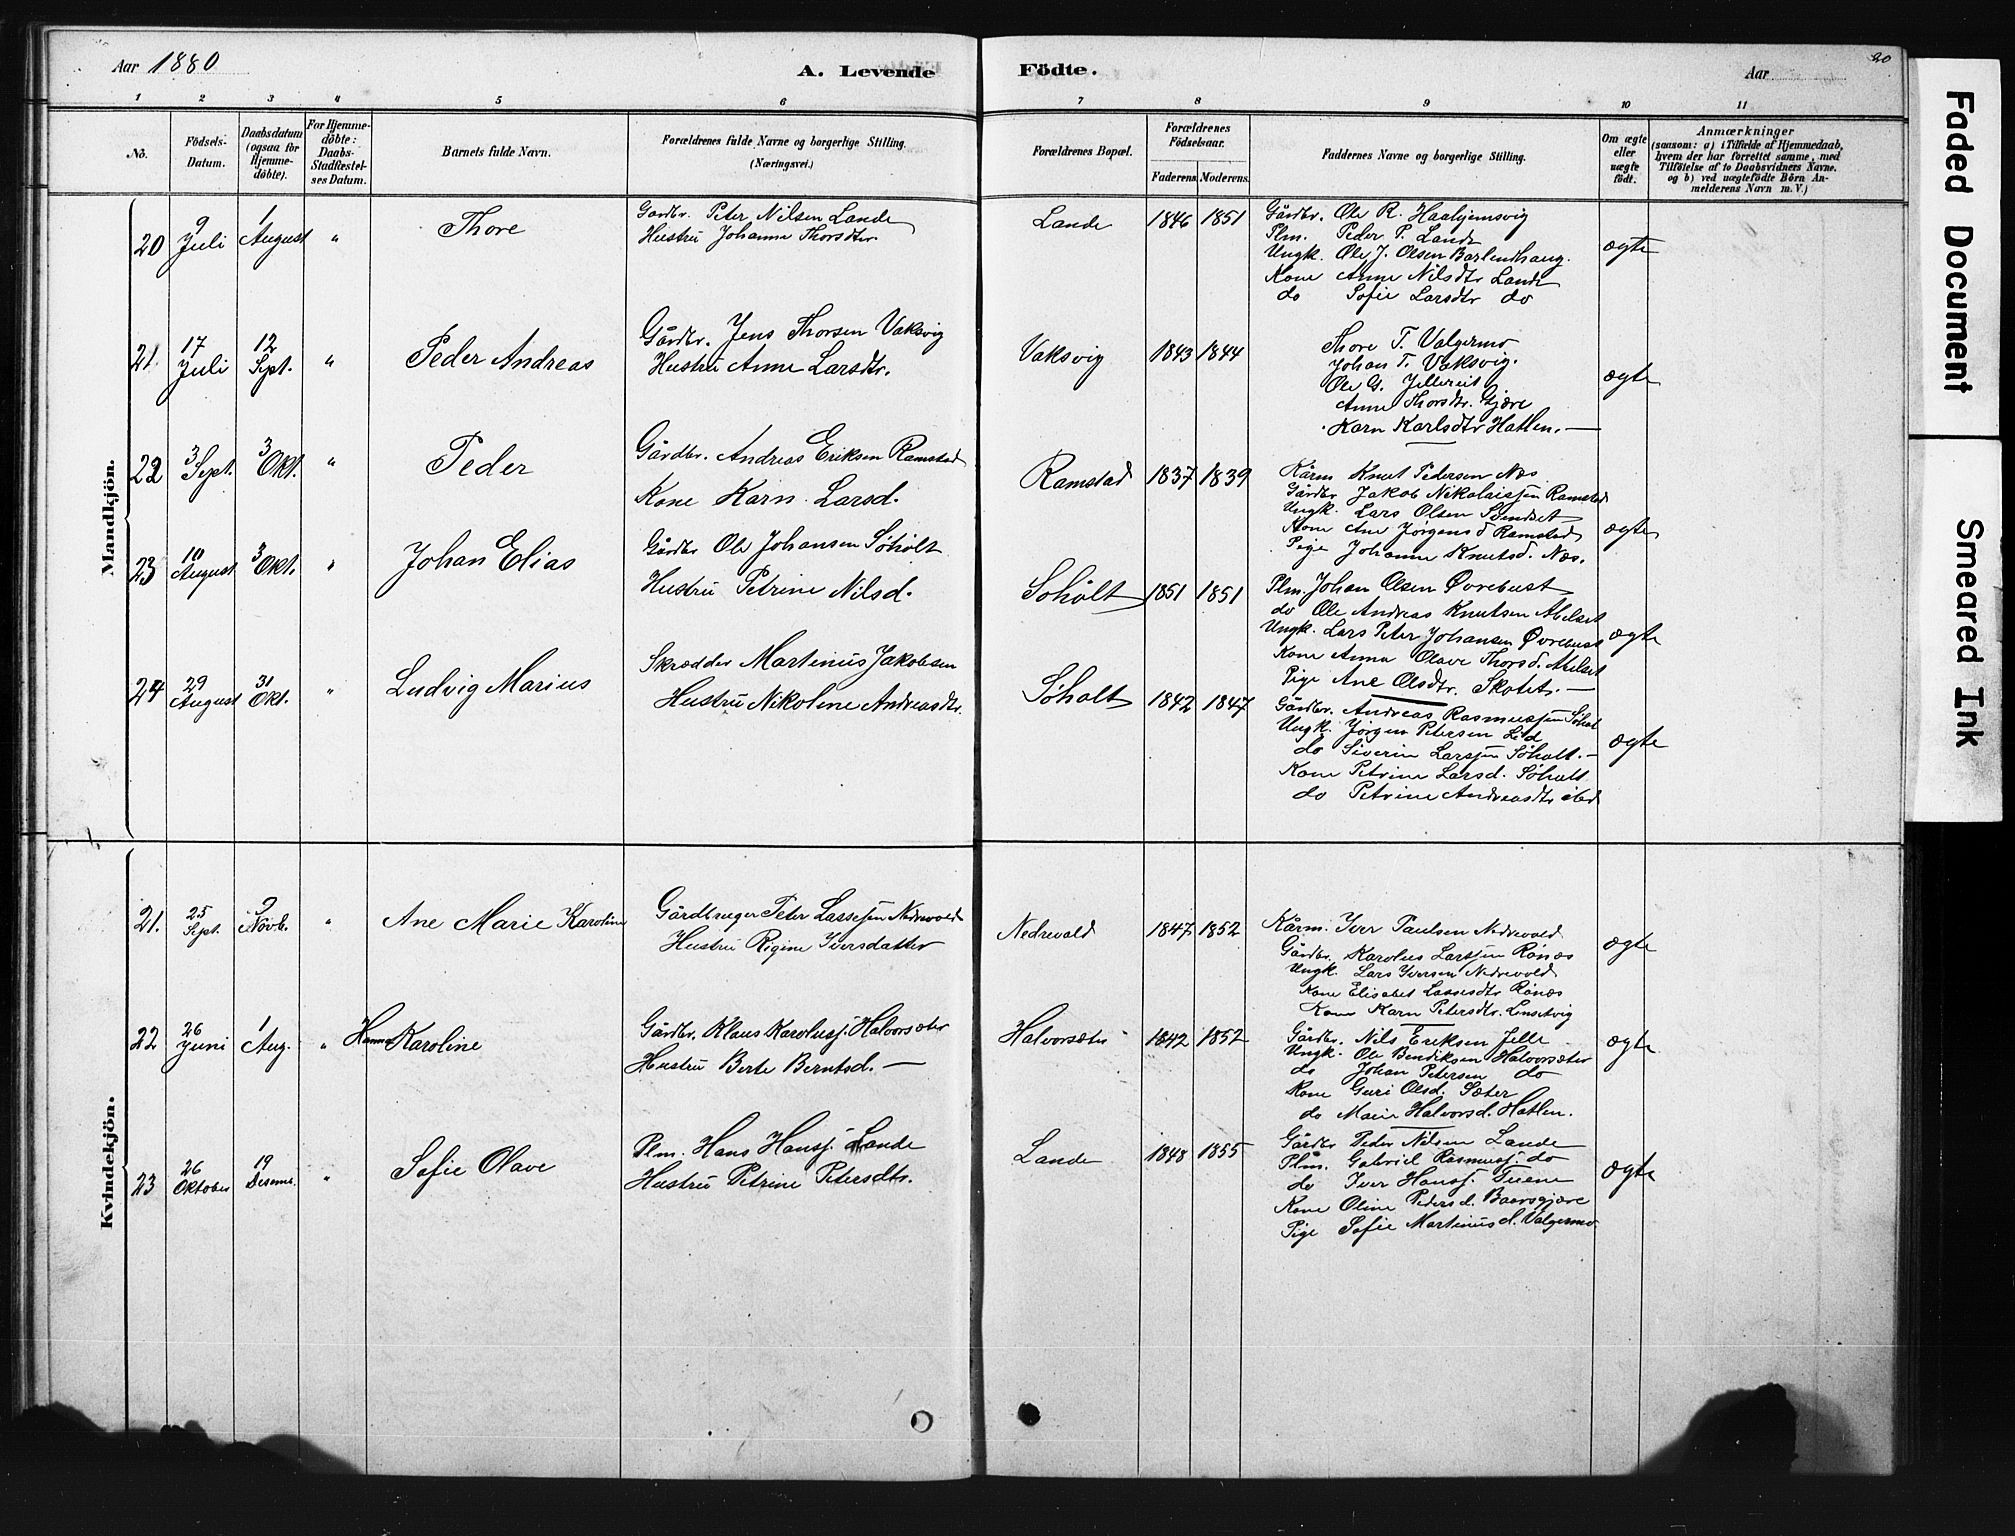 Aar 1880
A. Levende Födte.
Aar
20
1 2 3 4 5 6 7 8 9 10 11
No.
Födsels-Datum.
Daabsdatum (ogsaa for Hjemme-döbte).
For Hjemme-döbte: Daabs-Stadfæstel-ses Datum.
Barnets fulde Navn.
Forældrenes fulde Navne og borgerlige Stilling. (Næringsvei.)
Forældrenes Bopæl.
Forældrenes Födselsaar.
Faderens. Moderens.
Faddernes Navne og borgerlige Stilling.
Om ægte eller uægte födt.
Anmærkninger
(saasom: a) i Tilfælde af Hjemmedaab, hvem der har forrettet samme, med Tilföielse af to Daabsvidners Navne. og b) ved uægtefödte Börn An-melderens Navn m. V.)
Mandkjön.
20 9 Juli 1 August " Thore
Gardbr. Peter Nilsen Lande
Hustru Johanne Thorsdtr.
Lande 1846 1851
Gårdbr. Ole R. Haahjemsvig
Plm. Peder P. Lande
Ungk. Ole J. Olsen Barlindhaug.
Kone Anne Nilsdtr Lande
do Sofie Larsdtr do
ægte
21. 17 Juli 12 Sept. " Peder Andreas
Gårdbr. Jens Thorsen Vaksvig
Hustru Anne Larsdtr.
Vaksvig 1843 1844
Thore T. Valgermo
Johan T. Vaksvig.
Ole G. Jellereit
Anne Thorsdtr. Gjære
Karn Karlsdtr Hatlen. —
ægte
22 3 Sept. 3 Okt. " Peder
Gårdbr. Andreas Eriksen Ramstad
Kone Karn Larsd.
Ramstad 1837 1839
Kårm Knut Pedersen Næs
Gårdbr Jakob Nikolaissen Ramstad
Ungk. Lars Olsen
Kone Ane Jørgensd Ramstad
Pige Johanne Knutsd. Næs.
ægte
23 10 August 3 Okt. " Johan Elias
Gårdbr Ole Johansen Søholt
Hustru Petrine Nilsd.
Søholt 1851 1851
Plm. Johan Olsen Øvrebust
do Ole Andreas Knutsen Abelset
Ungk. Lars Peter Johansen Øvrebust
Kone Anna Olave Thorsd. Abelset
Pige Ane Olsdtr. Skotet. —
ægte
24 29 August 31 Okt. " Ludvig Marius
Skrædder Martinus Jakobsen
Hustru Nikoline Andreasdtr.
Søholt 1842 1847
Gårdbr. Andreas Rasmussen Søholt
Ungk. Jørgen Petersen Lid
do Siverin Larssen Søholt. —
Kone Petrine Larsd. Søholt
do Petrine Andreasdtr ibd
ægte
Kvindekjön.
21. 25 Sept. 2 Novb. " Ane Marie Karoline
Gårdbruger Peter Lassesen Nedrevold
Hustru Rigine Iversdatter
Nedrevold 1847 1852
Kårm. Iver Paulsen Nedrevold
Gårdbr. Karolus Larssen Rønæs
Ungk. Lars Iversen Nedrevold
Kone Elisabet Lassesdtr Rønæs
Kone Karn Petersdtr. Linsetvig
ægte
22 26 Juni 1 Aug. " Hanna Karoline
Gårdbr. Klaus Karolusj. Halvorsæter
Hustru Berte Berntsd. —
Halvorsæter 1842 1852
Gårdbr. Nils Eriksen Jelle
Ungk. Ole Bendiksen Halvorsæter
do Johan Petersen do
Kone Guri Olsd. Sæter
do Marie Halvorsd. Hatlen.
ægte
23 26 Oktober 19 Desemb. " Sofie Olave
Plm. Hans Hansj. Lande
Hustru Petrine Petersdtr.
Lande 1848 1855
Gårdbr Peder Nilsen Lande
Plm. Gabriel Rasmusj. do
do Iver Hansj. Tuene
Kone Oline Pedersd. Baarsgjære
Pige Sofie Martinusd. Valgermo
ægte
Faded Document
Smeared Ink